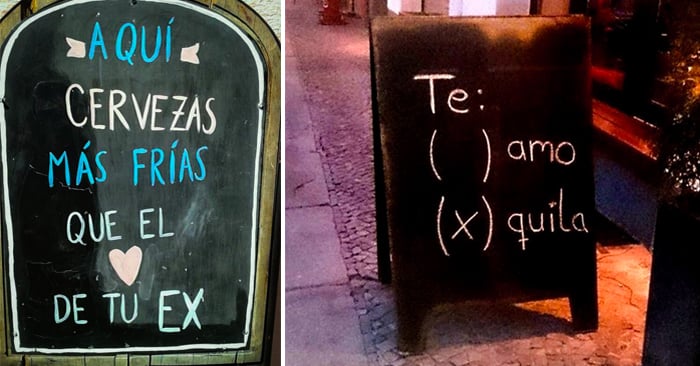 AQUÍ
CERVEZAS
MÁS FRÍAS
QUE EL
DE TU EX
Te:
( ) amo
(x) quila